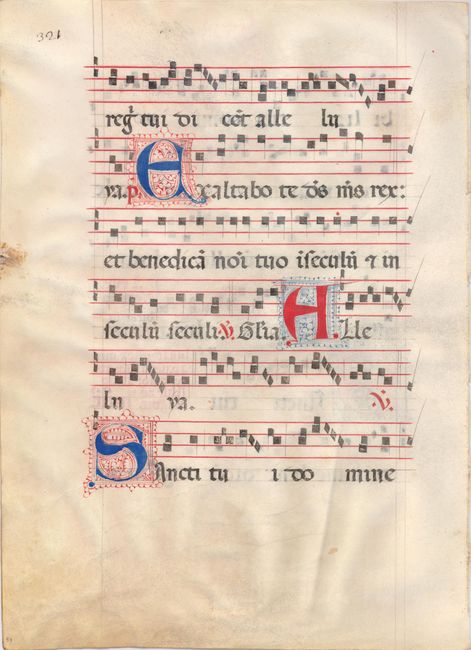 321
reḡ tui di cēt alle lu
ya. p Exaltabo te ds̄ ms̄ rex:
et benedicā noī tuo īseculū ⁊ in
seculū seculi. V̄. Gl̄ia. Alle
lu ya. V̄.
Sancti tu i do mine